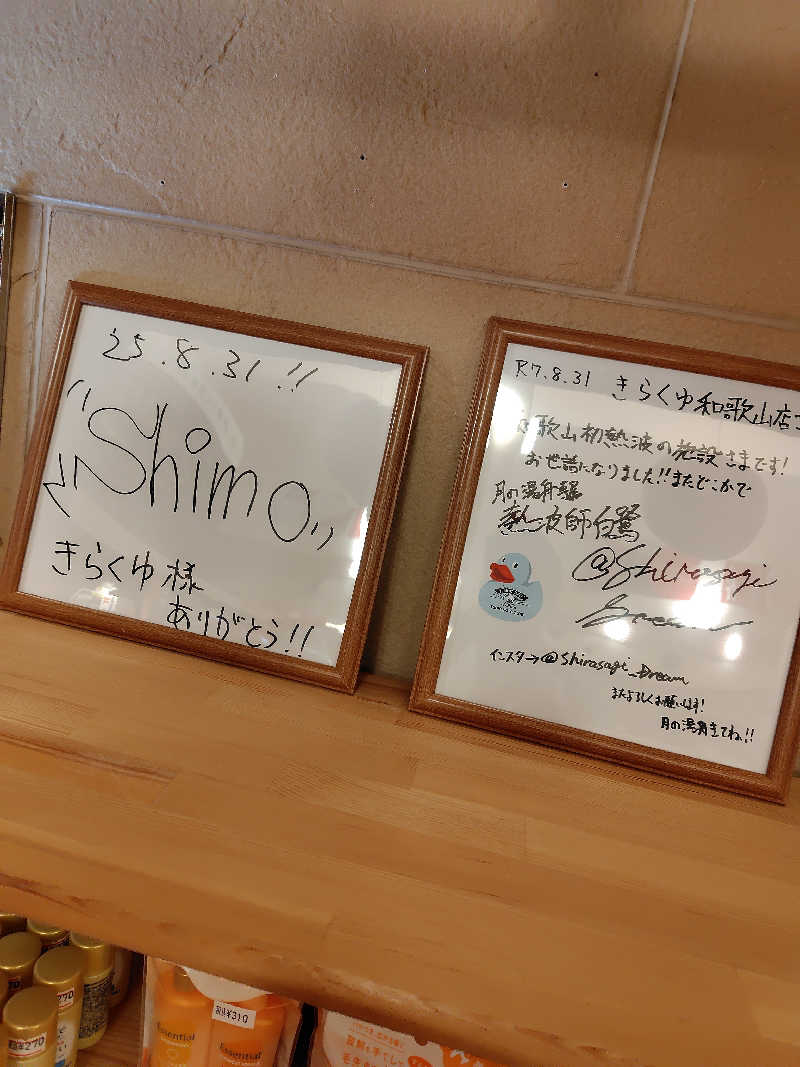 '25.8.31!!
"Shimo"
きらくゆ様
ありがとう!!
R7.8.31 きらくゆ和歌山店
歌山初熱波の施設さまです!
お世話になりました!!またどこかで
月の湯舟
熱波師白鷺
@Shirasagi
インスタ→@Shirasagi_Dream
またよろしくお願いします!
月の湯舟きてね!!
¥270
¥270
税込¥310
Essential
Essential